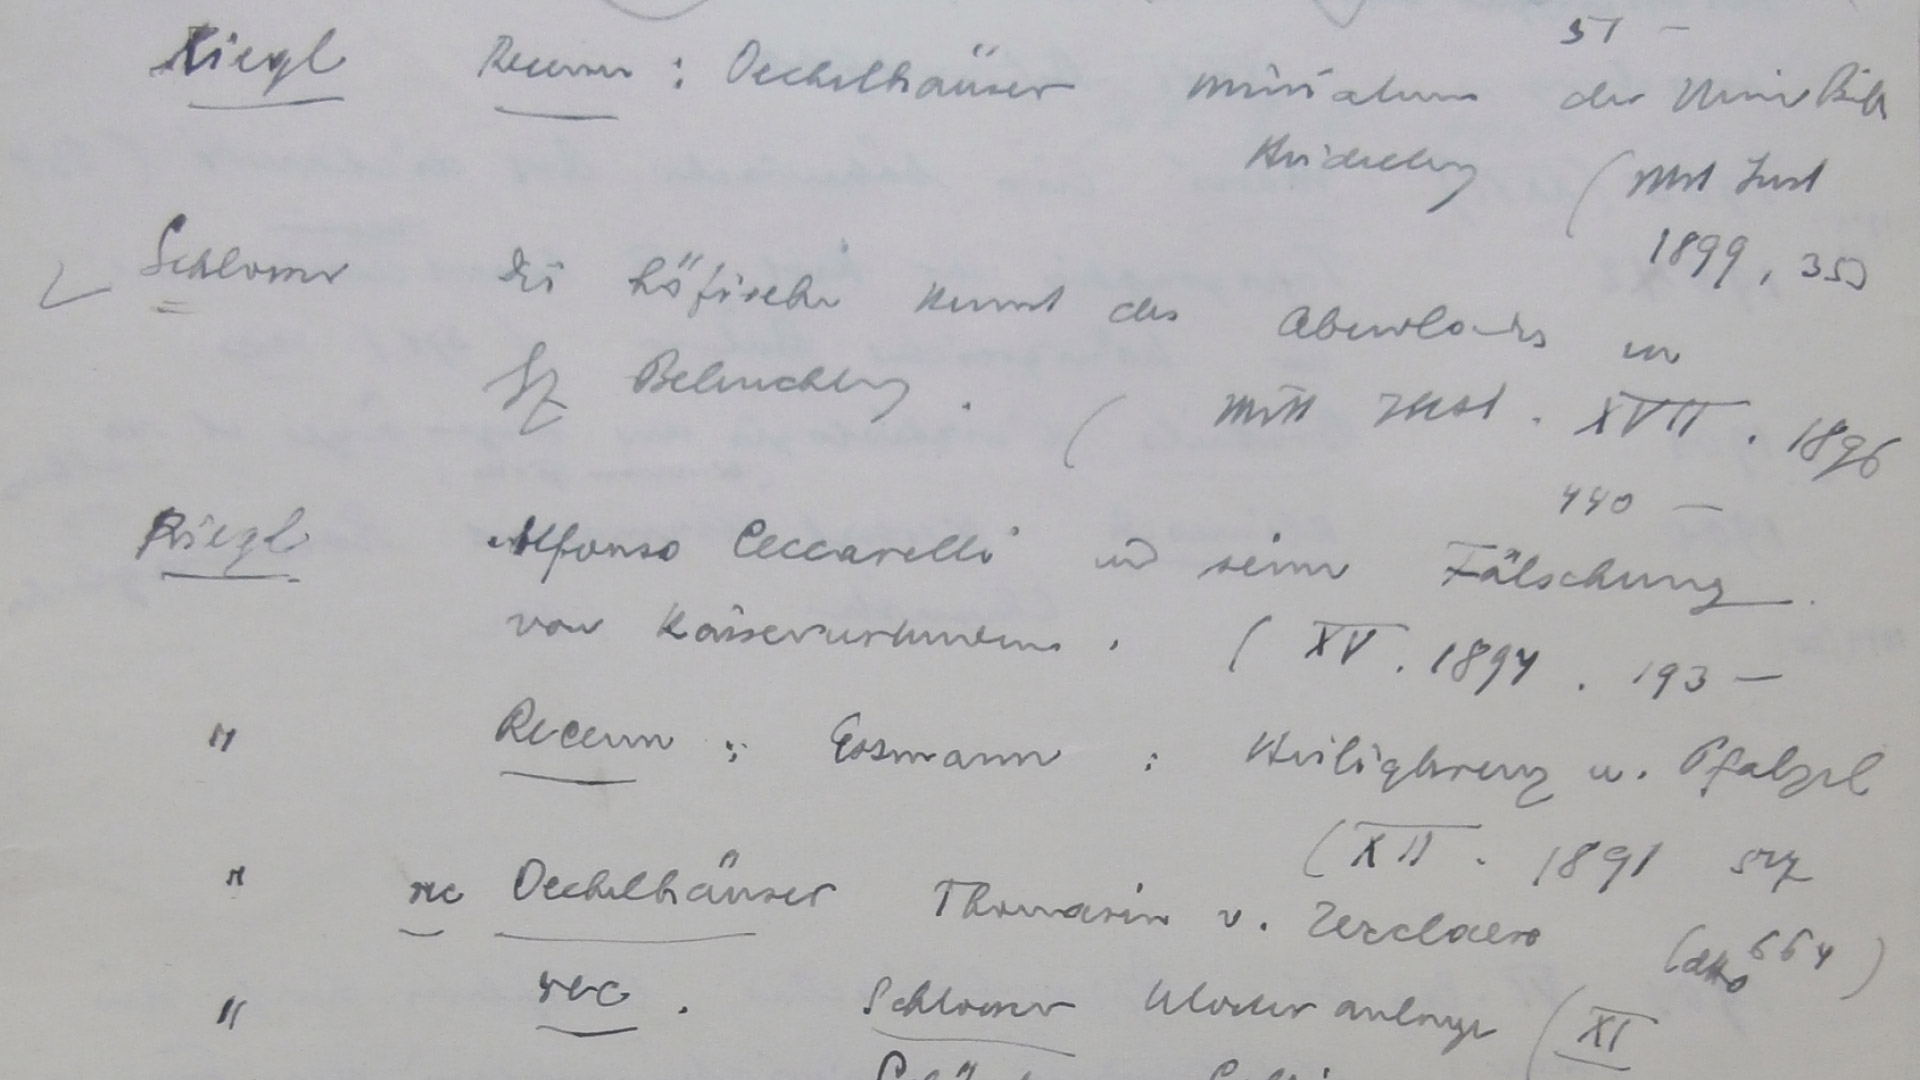 51 —
Riegl Recens : Oechelhäuser Miniaturen der Univ Bibl
Heidelberg ( Mitt Inst
1899, 35
Schlosser die höfische Kunst des Abendlandes in
bz Beleuchtung . ( Mitt Inst . XVII . 1896
440 —
Riegl Alfonso Ceccarelli und seine Fälschung
von Kaiserurkunden . ( XV . 1894 . 193 —
" Recens : Essmann : Heiligkreuz u. Pfalzel
( XII . 1891
" rec Oechelhäuser Thomasin v. Zerclaere (dtto 664)
" rec . Schlosser Klosteranlage ( XI